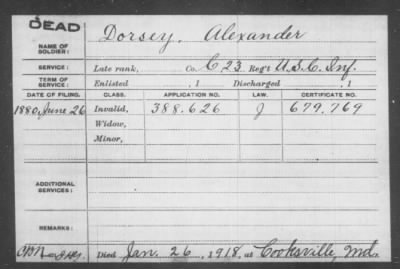 DEAD
NAME OF SOLDIER: Dorsey, Alexander
SERVICE: Late rank, Co. C 23 Reg't U.S.C. Inf.
TERM OF SERVICE: Enlisted , 1 Discharged , 1
DATE OF FILING. CLASS. APPLICATION NO. LAW. CERTIFICATE NO.
1880, June 26 Invalid, 388.626 J 679.769
Widow,
Minor,
ADDITIONAL SERVICES:
REMARKS:
Died Jan. 26, 1918, at Cooksville, Md.